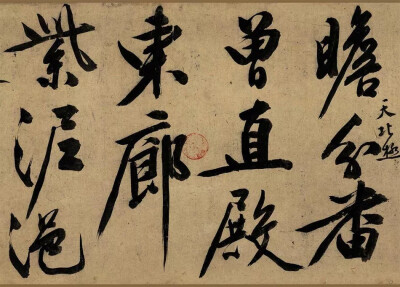 瞻天北極分番
曾直殿
東廊
紫泥浥